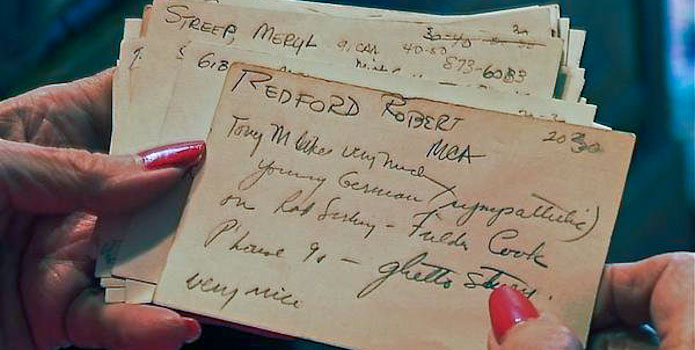 STREEP, MERYL 40-50
873-6083
618
REDFORD ROBERT
MCA
Tony M likes very much
young German (sympathetic)
on Rod Serling - Fielder Cook
P'house 90 - ghetto story.
very nice